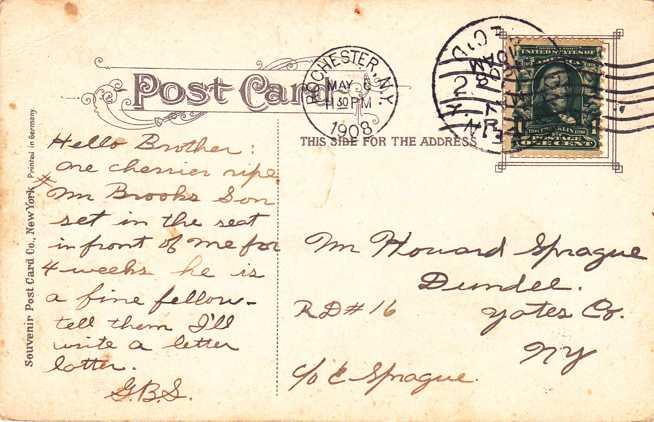 Post Card
ROCHESTER, N.Y.
MAY 6
11 30 PM
1908
REC'D
2
UNITED STATES OF
FRANKLIN
1
ONE CENT
THIS SIDE FOR THE ADDRESS
Souvenir Post Card Co., New York. Printed in Germany.
Hello Brother:
are cherries ripe
Mr Brooks Son
set in the seat
in front of me for
4 weeks he is
a fine fellow-
tell them I'll
write a letter
latter.
G.B.S.
Mr Howard Sprague
Dundee.
RD#16 Yates Co.
NY
c/o E Sprague.